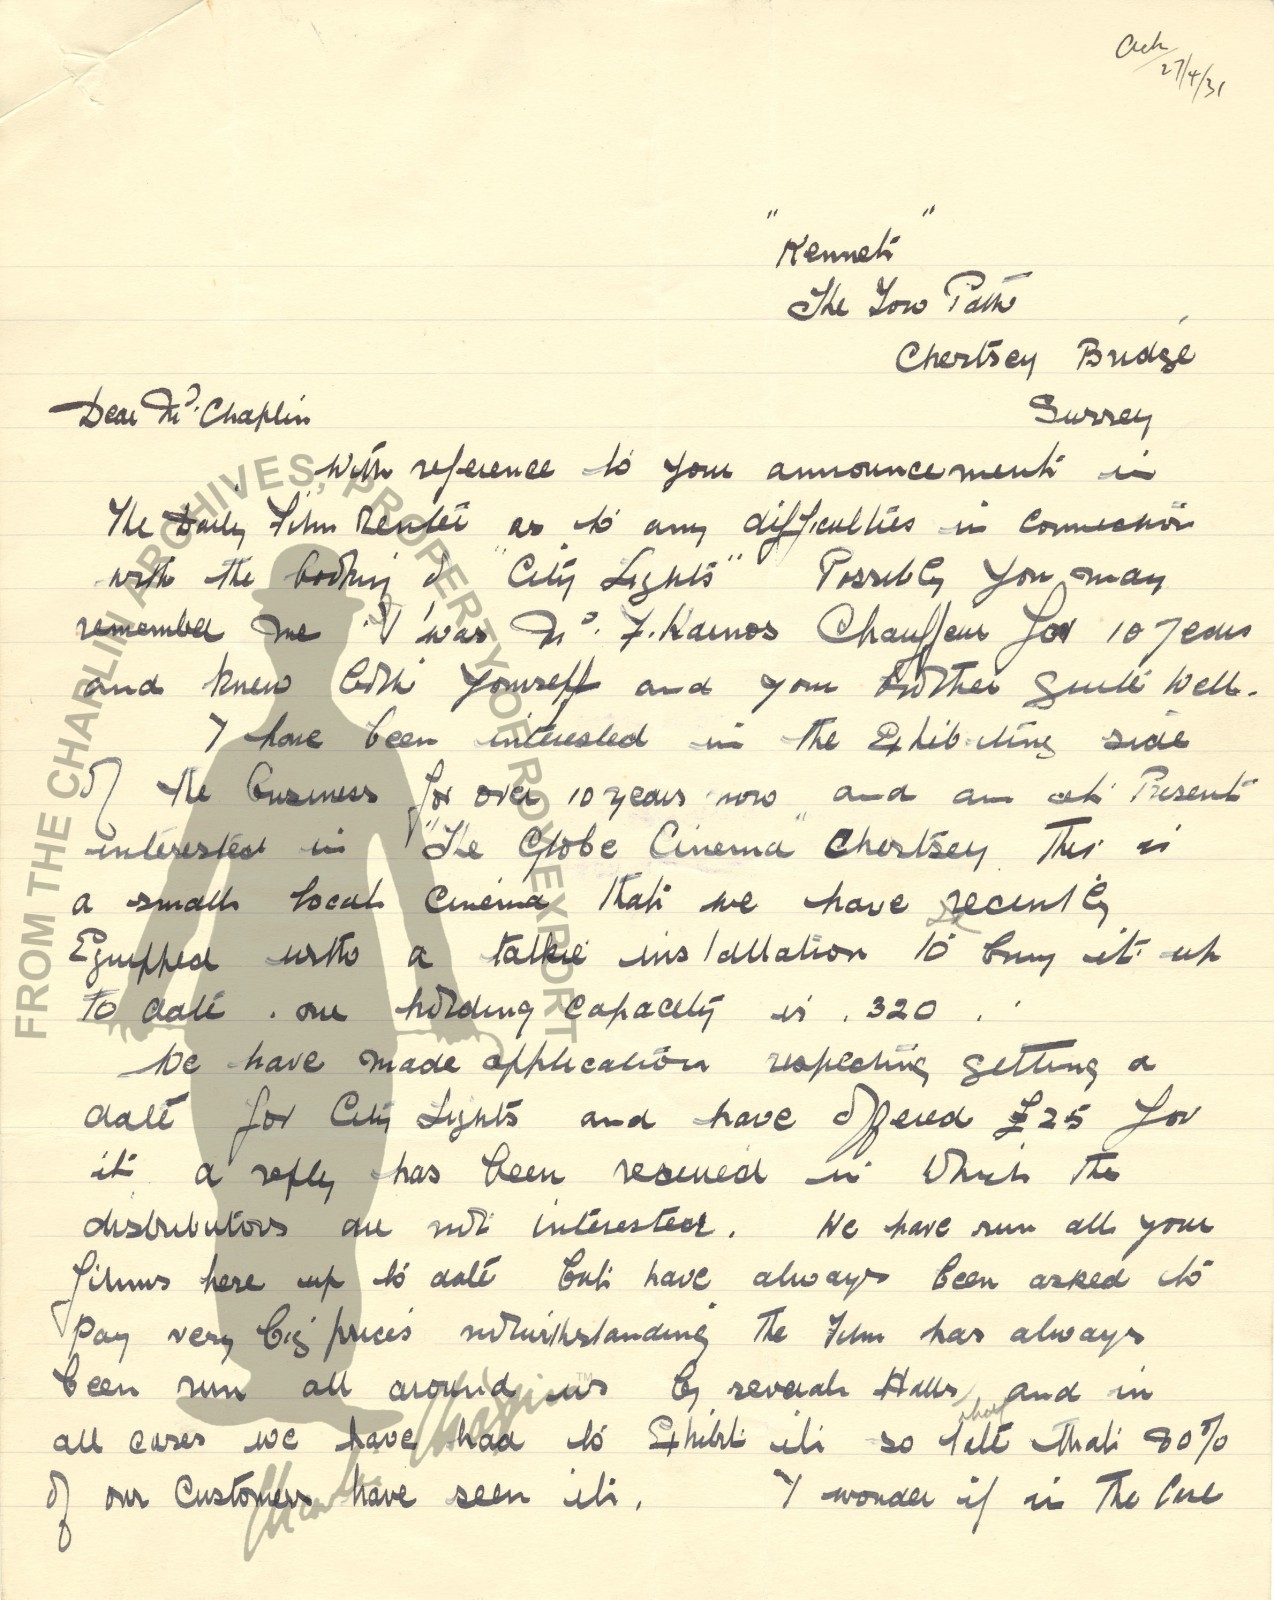 Ack
27/4/31
"Kennet"
The Tow Path
Chertsey Bridge
Surrey
Dear Mr. Chaplin
With reference to your announcement in
The Daily Film Renter as to any difficulties in connection
with the booking of "City Lights" Possibly you may
remember me I was Mr. F. Karnos Chauffeur for 10 years
and knew both yourself and your brother quite well.
I have been interested in the Exhibiting side
of the business for over 10 years now and am at Present
interested in "The Globe Cinema" Chertsey This is
a small local cinema that we have recently
Equipped with a talkie installation to bring it up
to date . our holding capacity is . 320 .
We have made application respecting getting a
date for City Lights and have offered £25 for
it a reply has been received in which the
distributors are not interested. We have run all your
films here up to date but have always been asked to
pay very big prices notwithstanding the Film has always
been run all around us by several Halls, and in
all cases we have had to Exhibit it so late that 80%
of our customers have seen it. I wonder if in the
FROM THE CHARLIN ARCHIVES, PROPERTY OF ROY EXPORT
Charlie Chaplin ™